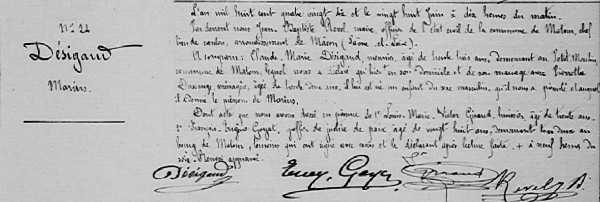 N° 24
Désigaud
Marius.
L'an mil huit cent quatre vingt dix et le vingt huit Juin à dix heures du matin.
Par devant nous Jean Baptiste Revel, maire, officier de l'état civil de la commune de Matour, chef
lieu de canton, arrondissement de Macon (Saône-et-Loire).
A comparu: Claude Marie Désigaud, meunier, âgé de trente huit ans, demeurant au Petit Moulin,
commune de Matour, lequel nous a déclaré qu'hier en son domicile et de son mariage avec Pierrette
ménagère, âgée de trente deux ans, il lui est né un enfant du sexe masculin, qu'il nous a présenté et auquel
il donne le prénom de Marius.
Dont acte que nous avons dressé en présence de 1° Louis Marie Victor Giraud, huissier, âgé de trente ans.
2° François Eugène Goyet, greffier de justice de paix, âgé de vingt huit ans, demeurant tous deux au
bourg de Matour, témoins qui ont signé avec nous et le déclarant après lecture faite. + à neuf heures du
soir. Renvoi approuvé.
Désigaud Eug. Goyet Giraud Revel B.